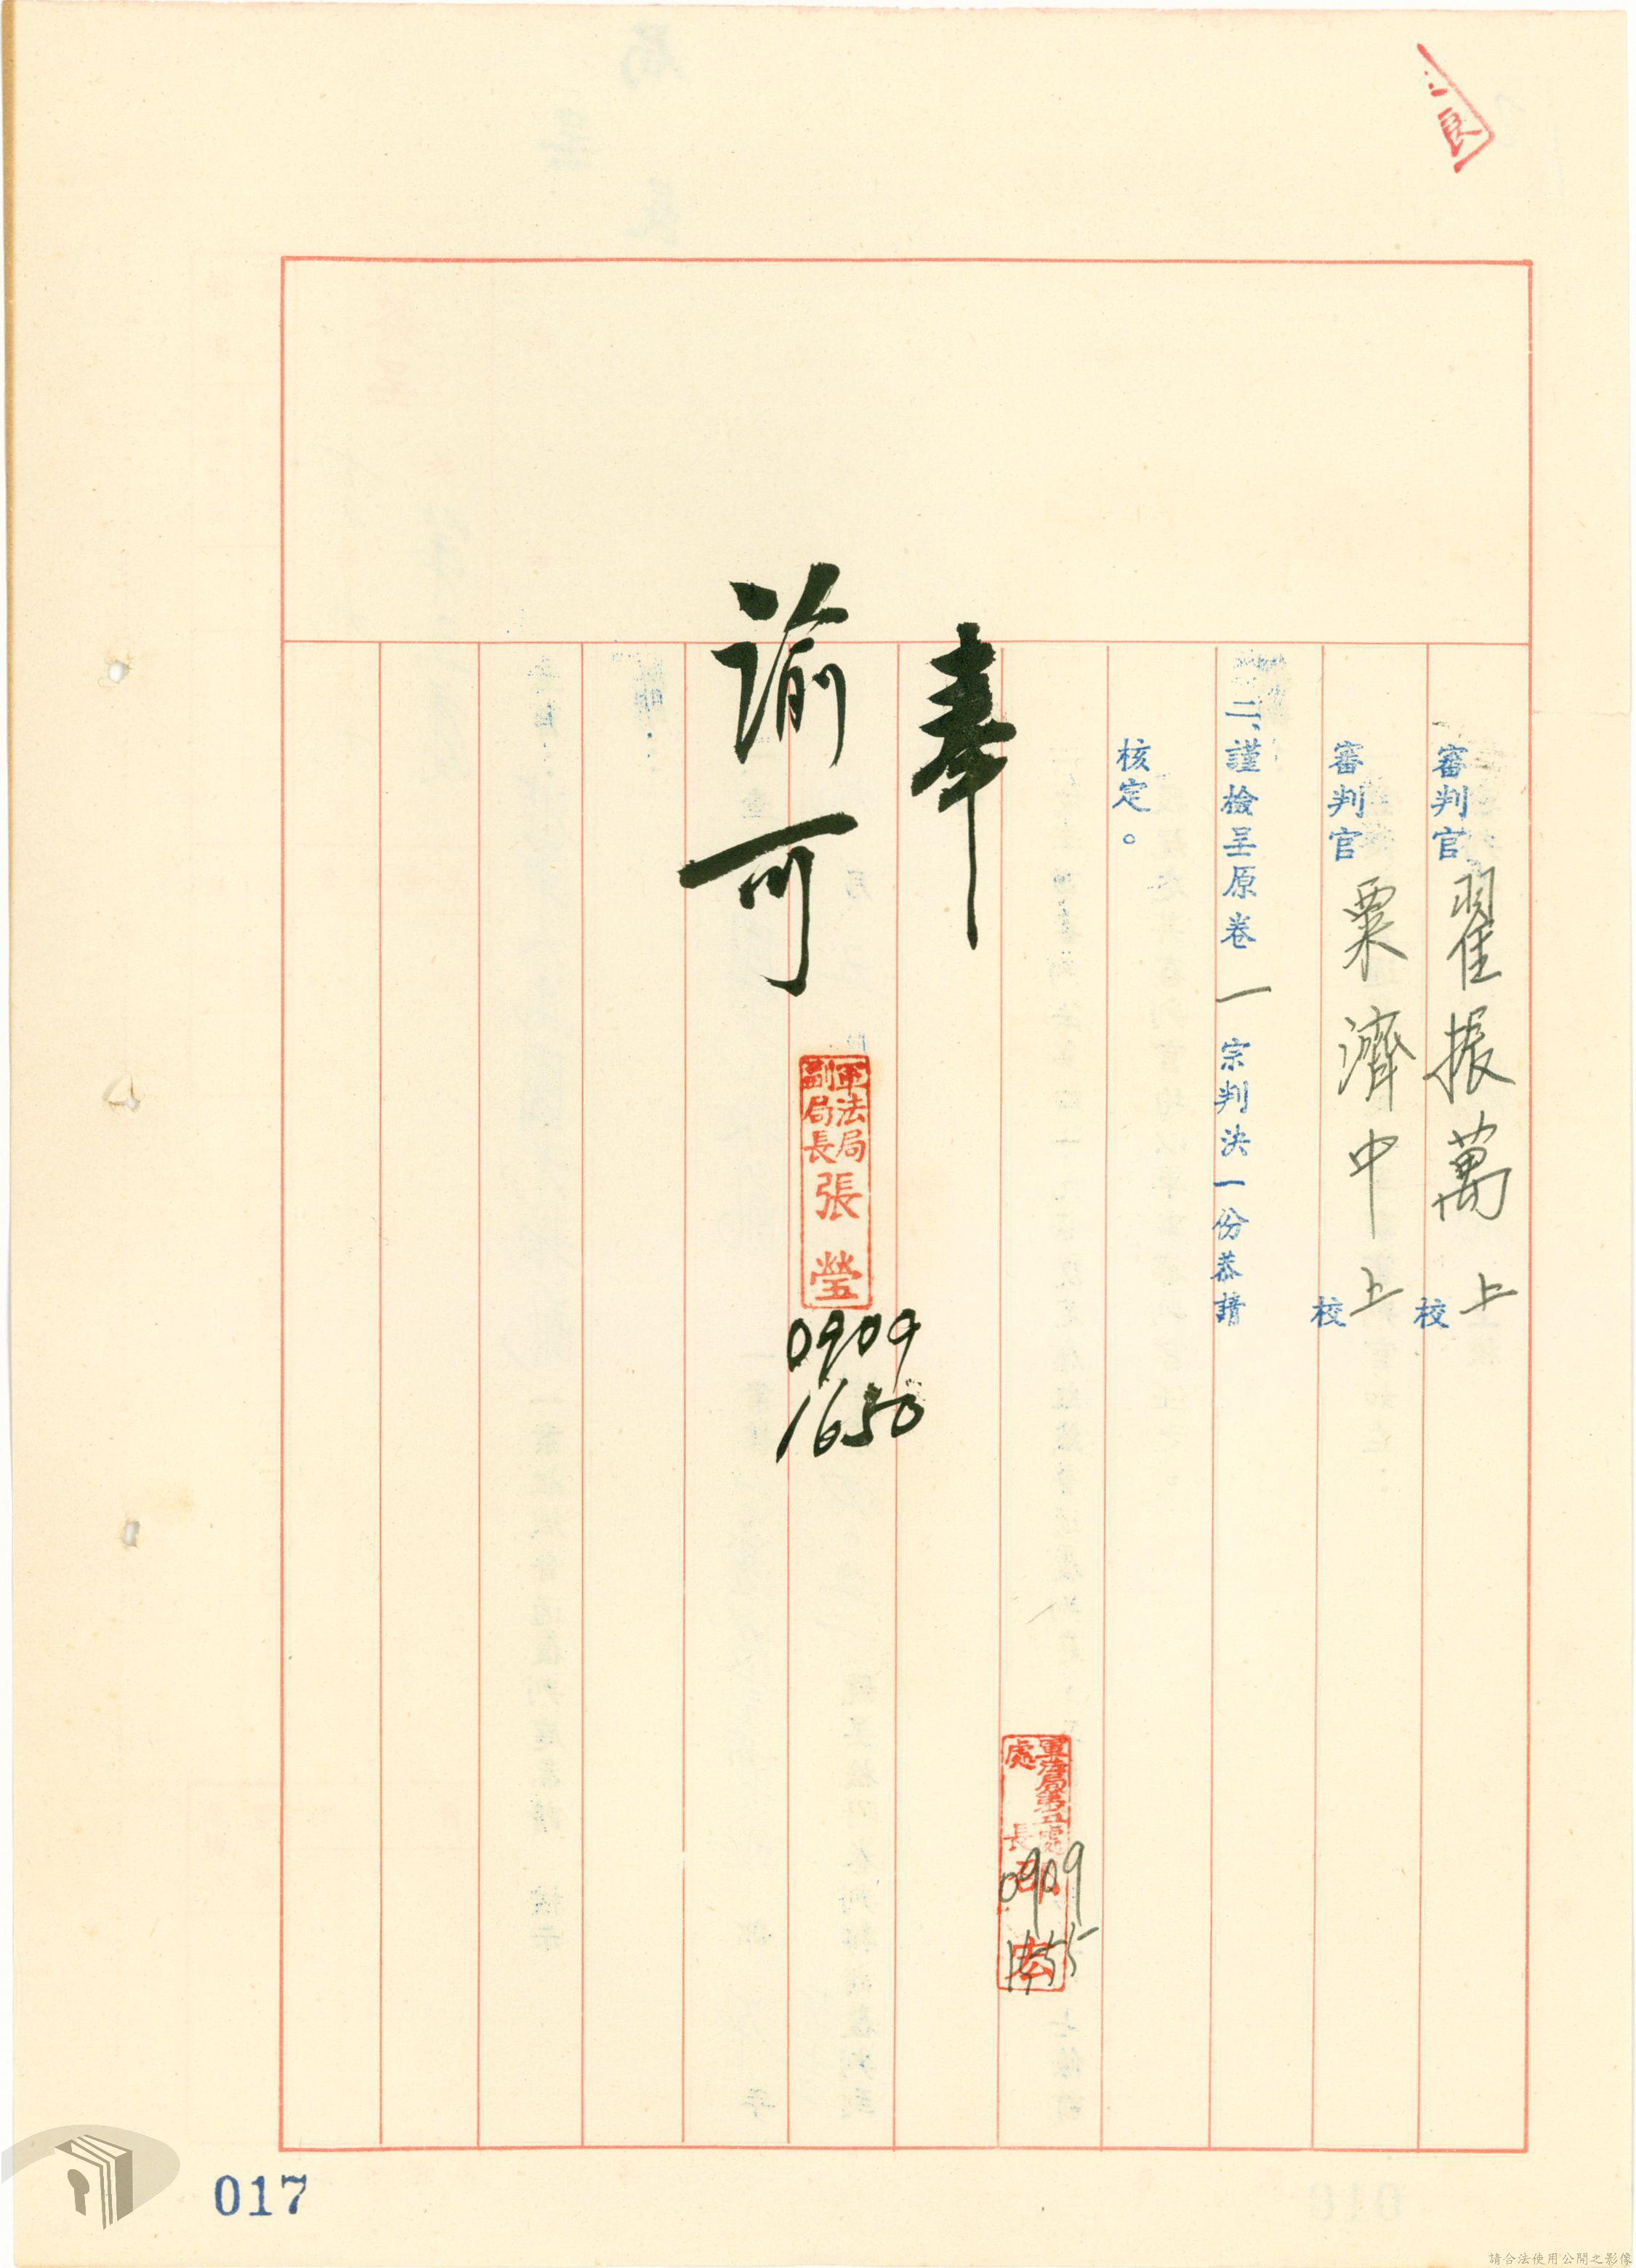 審判官翟振萬上校
審判官粟濟中上校
二、謹檢呈原卷一宗判決一份恭請
核定。
奉
諭可
軍法局
副局長
張瑩
0909
1650
軍法局第五處
處長
宏
0909
1555
良
017
請合法使用公開之影像